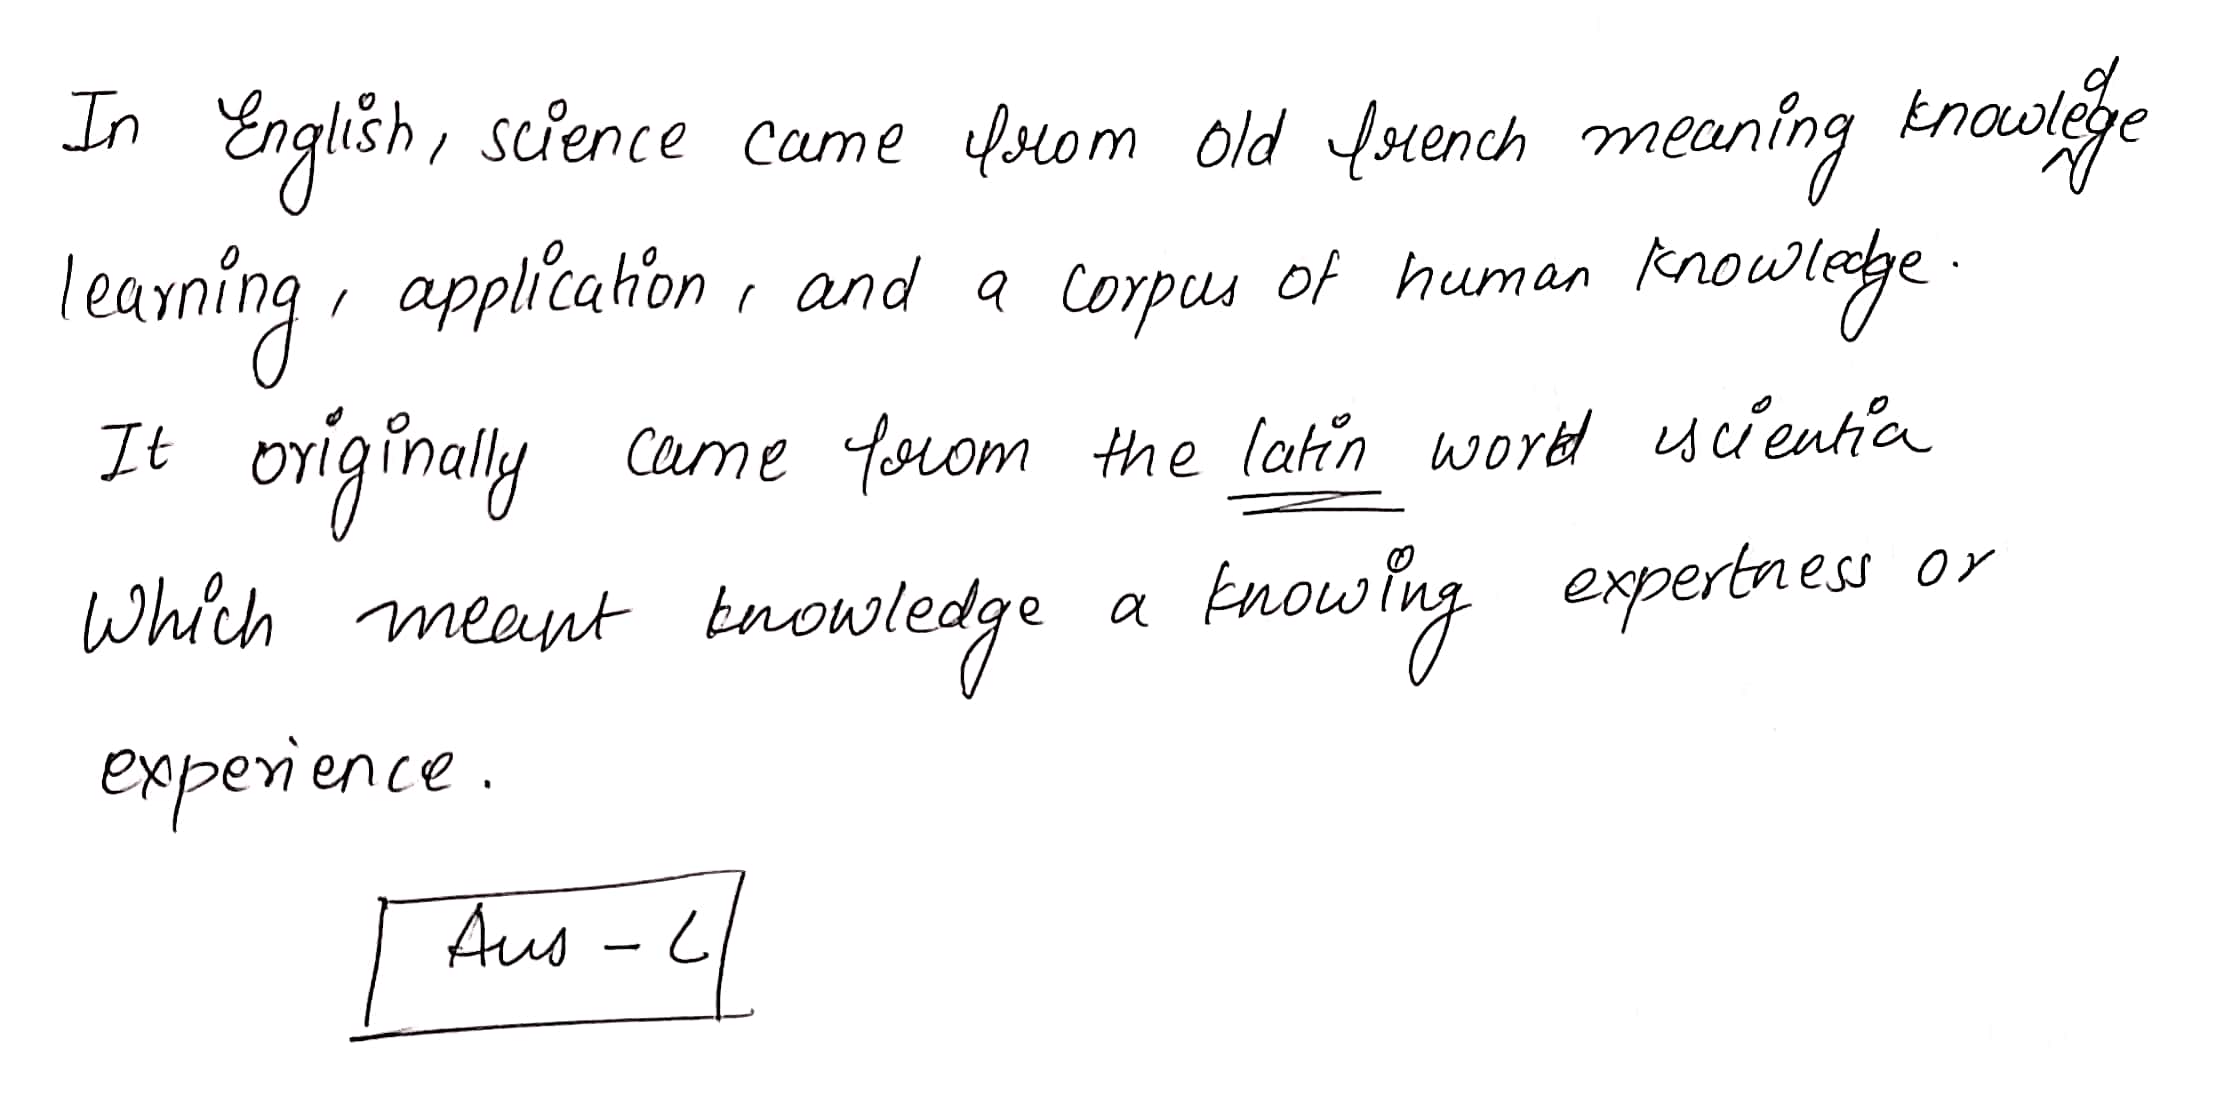 In English, science came from old french meaning knowledge
learning, application, and a corpus of human knowledge.
It originally came from the latin word scientia
Which meant knowledge a knowing expertness or
experience.
Ans - C